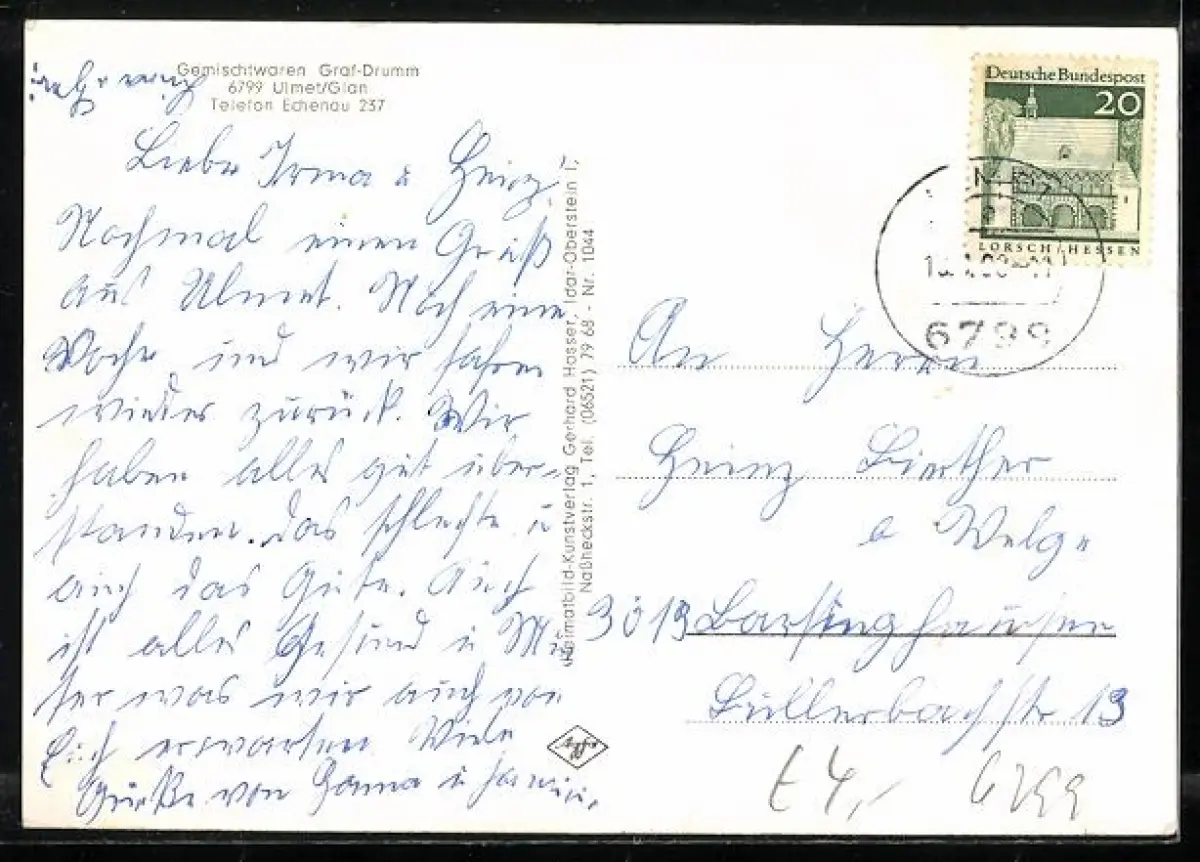 Gemischtwaren Graf-Drumm
6799 Ulmet/Glan
Telefon Echenau 237
Liebe Irma u Heinz
Nochmal einen Gruß
aus Ulmet. Noch eine
Woche und wir fahren
wieder zurück. Wir
haben alles gut über-
standen. das schlechte u
auch das Gute. Auch
ist alles Gesund u Mun
ter was wir auch von
Euch erwarten Viele
Grüße von u
Heimatbild-Kunstverlag Gerhard Hosser, Idar-Oberstein 1,
Naßheckstr. 1, Tel. (06521) 79 68 - Nr. 1044
Agfa
Deutsche Bundespost
20
LORSCH/HESSEN
6799
An Herrn
Heinz Bierther
b Welge
3013 Barsinghausen
Bullerbachstr 13
£4,- 6799